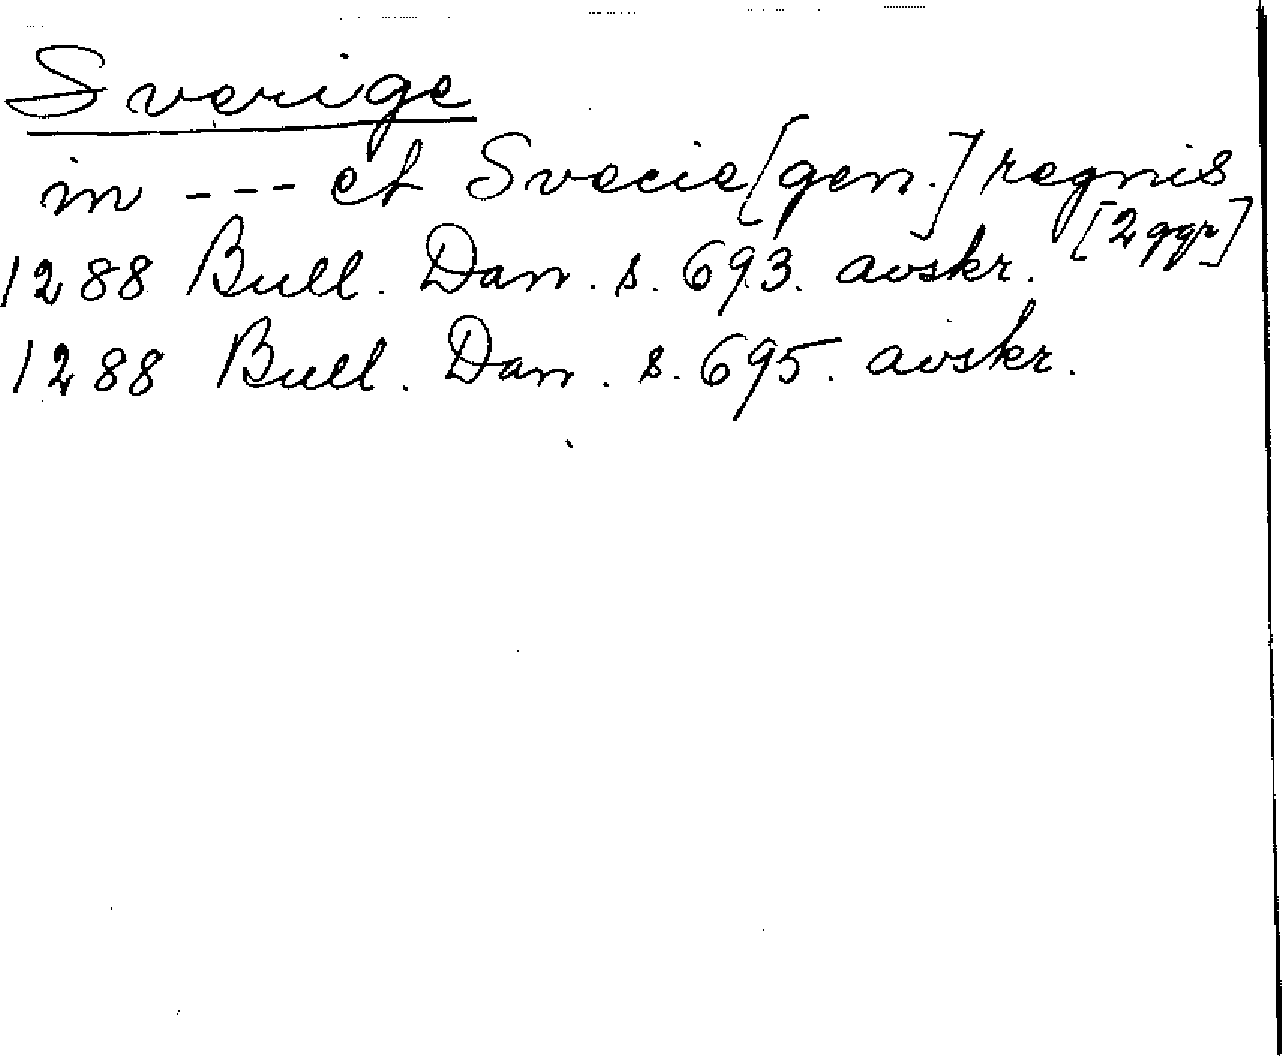 Sverige
in --- et Svecie [gen.] regnis
[2 ggr]
1288 Bull. Dan. s. 693. avskr.
1288 Bull. Dan. s. 695. avskr.